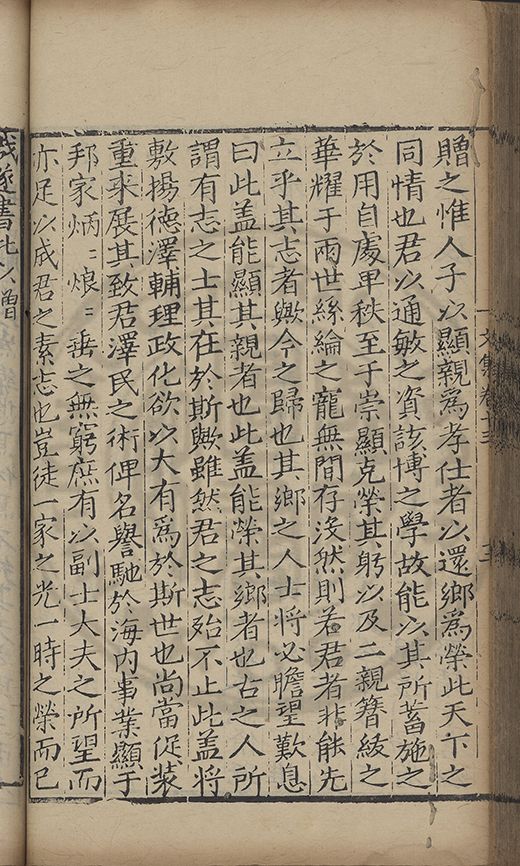 文集卷十三
五
贈之惟人子以顯親爲孝仕者以還鄉爲榮此天下之
同情也君以通敏之資該博之學故能以其所蓄施之
於用自處卑秩至于崇顯克榮其躬以及二親簪紱之
華耀于兩世絲綸之寵無間存沒然則若君者非能先
立乎其志者歟今之歸也其鄉之人士將必瞻望歎息
曰此盖能顯其親者也此盖能榮其鄉者也古之人所
謂有志之士其在於斯歟雖然君之志殆不止此盖將
敷揚德澤輔理政化欲以大有爲於斯世也尚當促裝
重來展其致君澤民之術俾名譽馳於海內事業顯于
邦家炳〻烺〻垂之無窮庶有以副士大夫之所望而
亦足以成君之素志也豈徒一家之光一時之榮而已
哉遂書此以贈